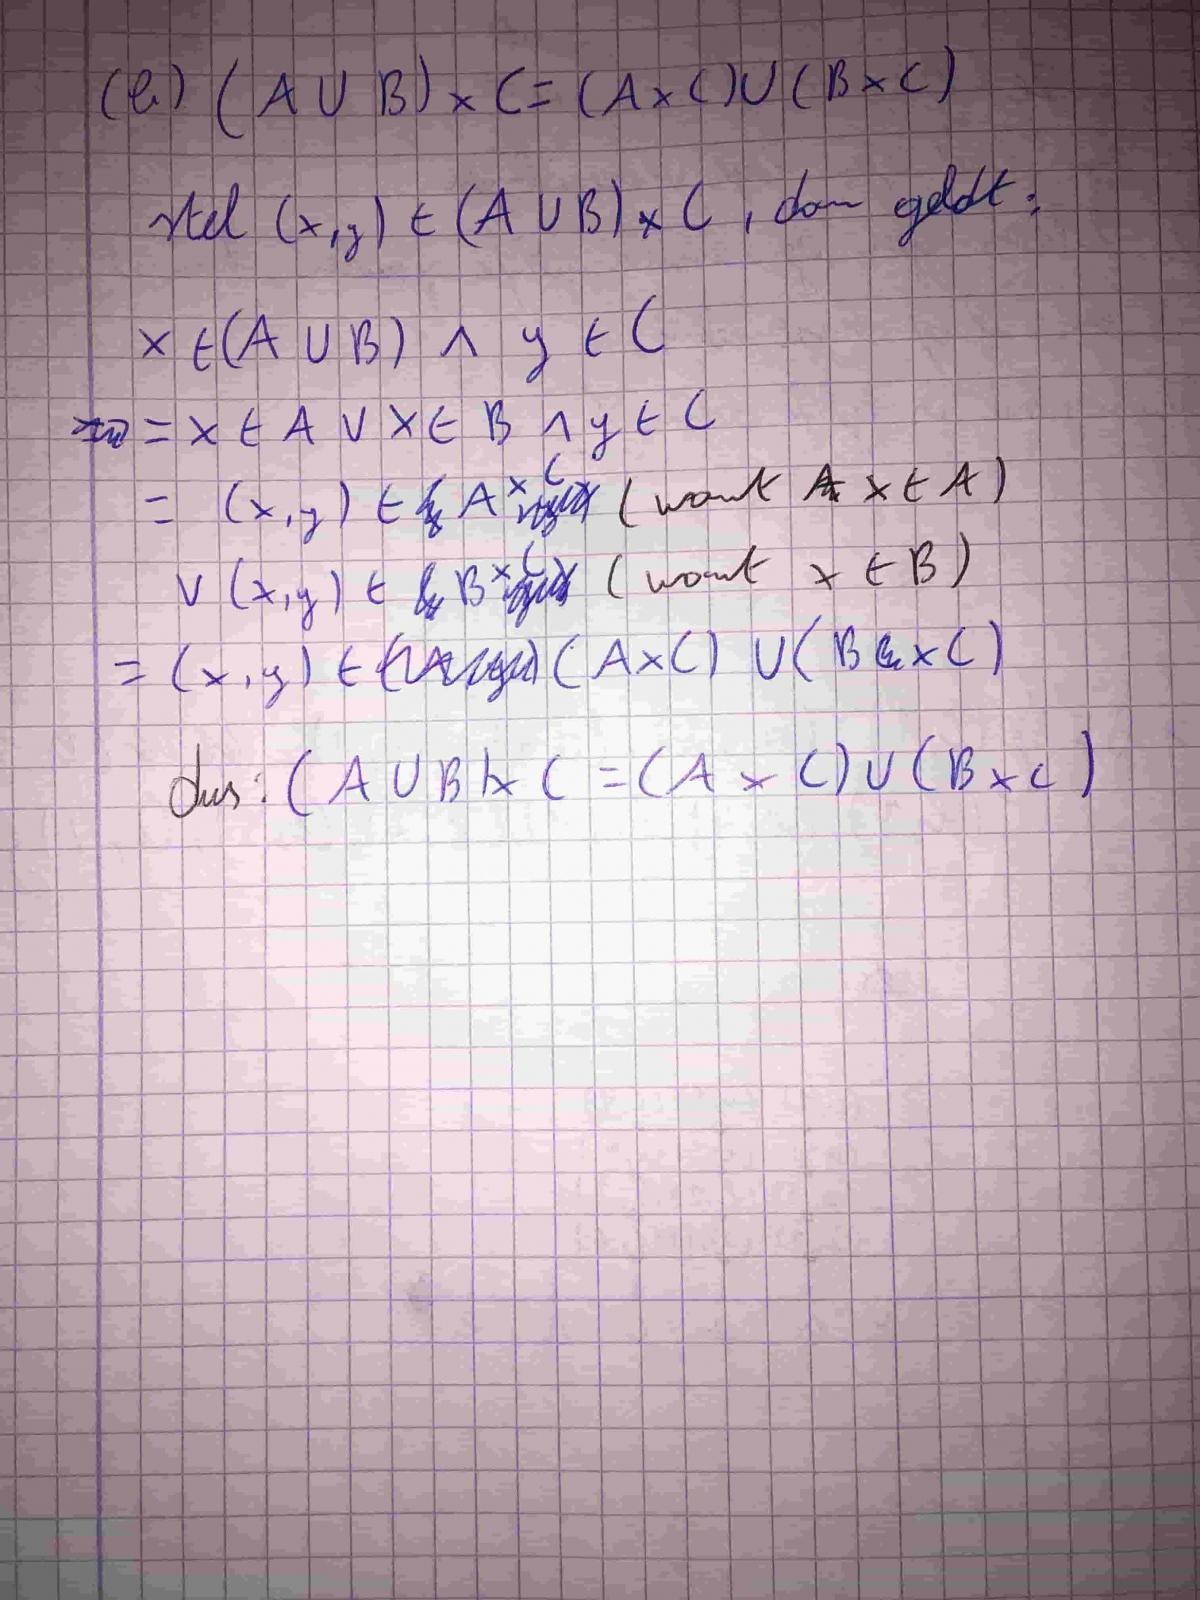 (b) (A ∪ B) × C = (A × C) ∪ (B × C)
stel (x,y) ∈ (A ∪ B) × C, dan geldt:
x ∈ (A ∪ B) ∧ y ∈ C
= x ∈ A ∨ x ∈ B ∧ y ∈ C
= (x,y) ∈ A × C (want x ∈ A)
∨ (x,y) ∈ B × C (want x ∈ B)
= (x,y) ∈ (A × C) ∪ (B × C)
dus: (A ∪ B) × C = (A × C) ∪ (B × C)